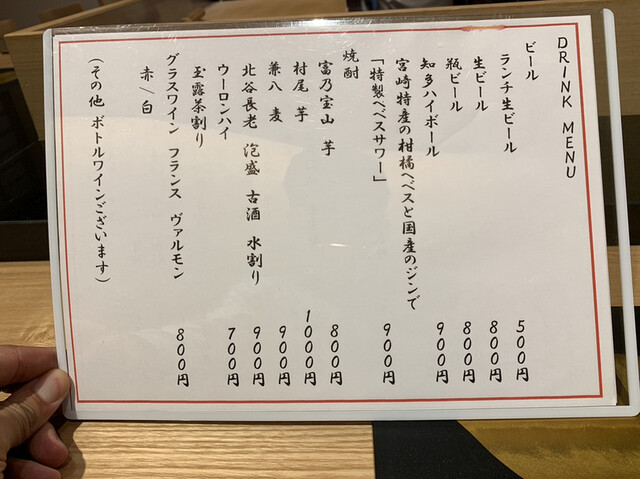 DRINK MENU
ビール
ランチ生ビール 500円
生ビール 800円
瓶ビール 800円
知多ハイボール 900円
宮崎特産の柑橘ヘベスと国産のジンで
「特製ヘベスサワー」 900円
焼酎
富乃宝山 芋 800円
村尾 芋 1000円
兼八 麦 900円
北谷長老 泡盛 古酒 水割り 900円
ウーロンハイ 700円
玉露茶割り
グラスワイン フランス ヴァルモン 800円
赤/白
(その他 ボトルワインございます)